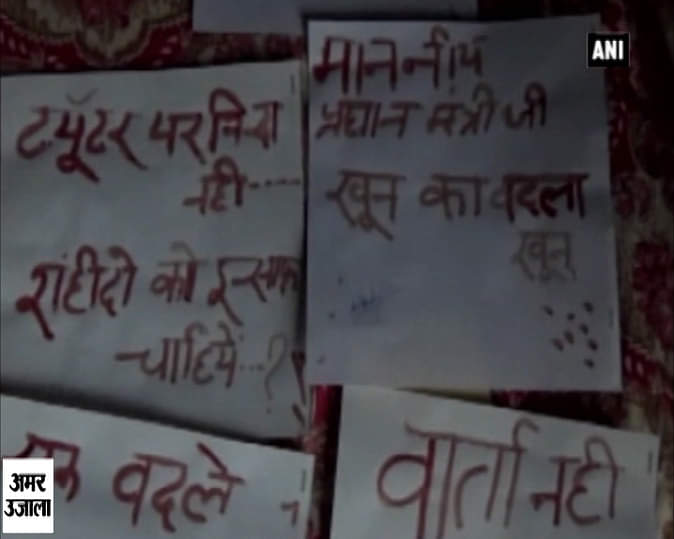 ट्यूटर पर निंदा
नही....
शहीदो को इन्साफ
चाहिये...?
माननीय
प्रधान मंत्री जी
खून का बदला
खून
बदले
वार्ता नही
ANI
अमर
उजाला